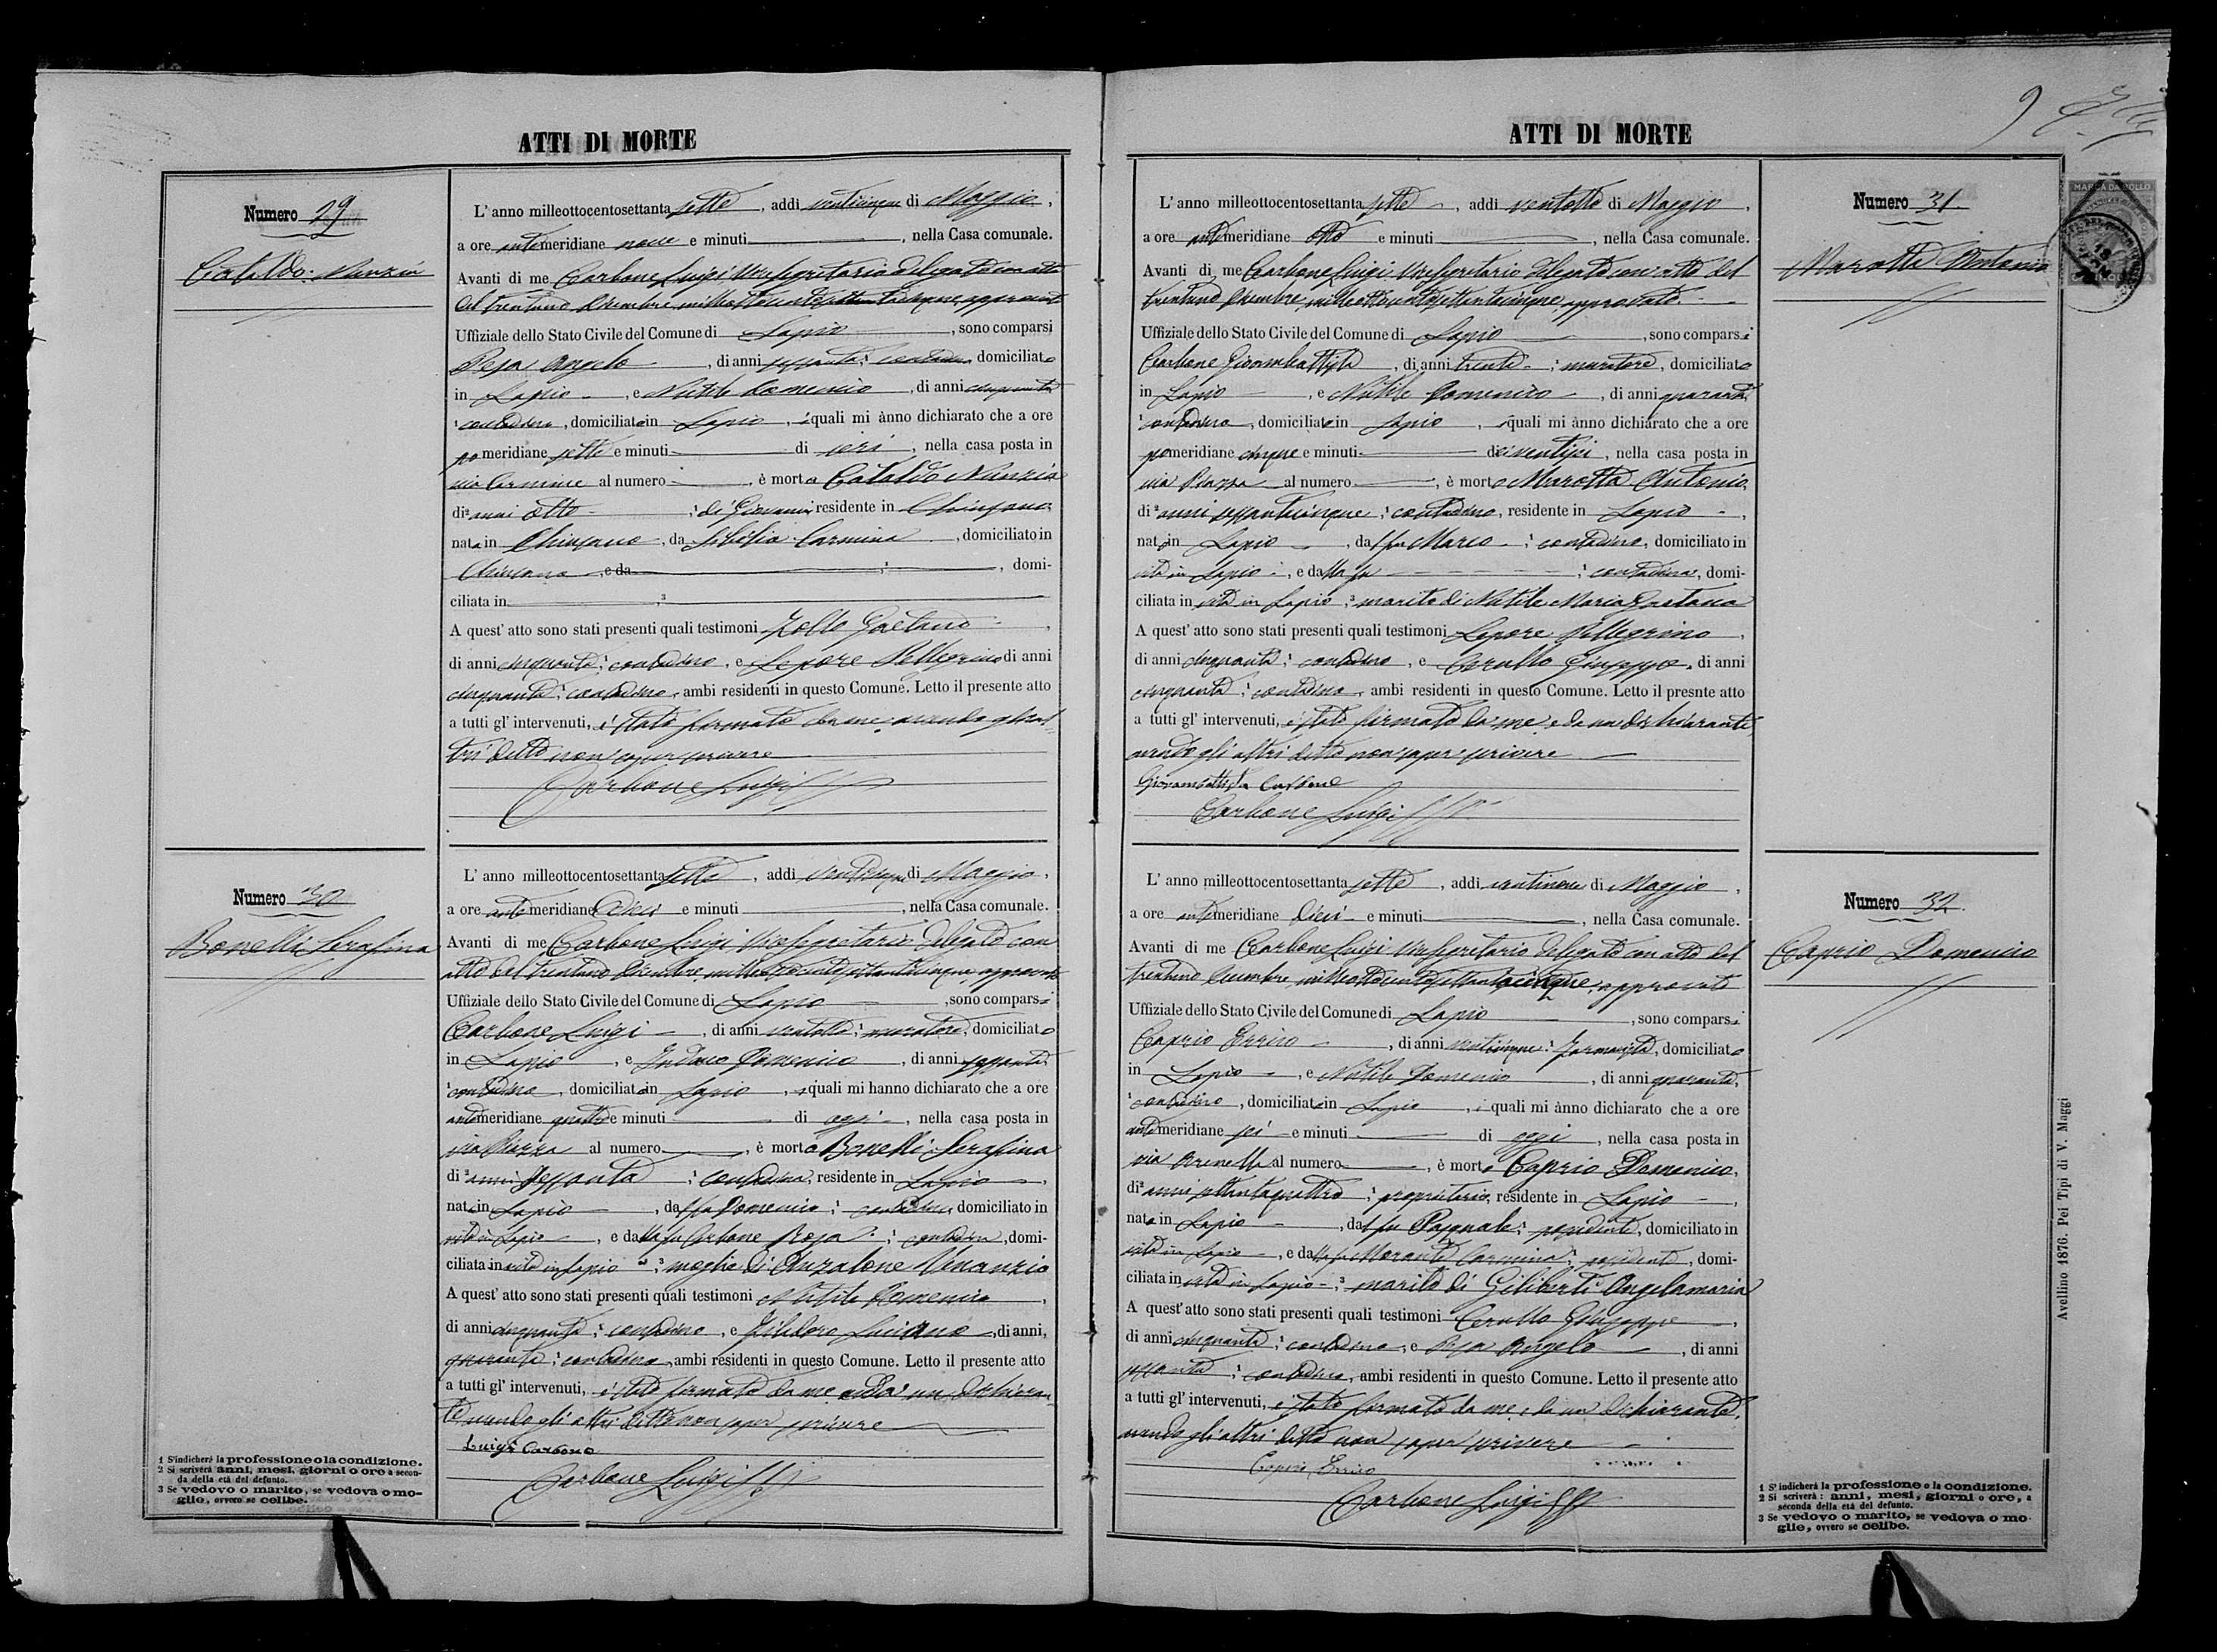 ATTI DI MORTE
Numero 29
Cataldo Nunzia
L' anno milleottocentosettanta sette, addi venticinque di Maggio,
a ore antemeridiane nove e minuti, nella Casa comunale.
Avanti di me Carbone Luigi Vicesegretario delegato con atto
del trentuno Dicembre milleottocentosettantacinque approvato
Uffiziale dello Stato Civile del Comune di Lapio, sono comparsi
Pesa Angelo, di anni sessanta, contadino, domiciliato
in Lapio, e Nutile Domenico, di anni cinquanta
contadino, domiciliato in Lapio, i quali mi ànno dichiarato che a ore
pomeridiane sette e minuti di ieri, nella casa posta in
via Carmine al numero, è morta Cataldo Nunzia
di anni otto, di Giovanni residente in Chiusano,
nata in Chiusano, da Sibilia Carmina, domiciliato in
Chiusano, e da, domi-
ciliata in
A quest' atto sono stati presenti quali testimoni Zollo Gaetano,
di anni cinquanta, contadino, e Lepore Pellegrino di anni
cinquanta, contadino, ambi residenti in questo Comune. Letto il presente atto
a tutti gl' intervenuti, è stato firmato da me avendo gli al-
tri detto non saper scrivere
Carbone Luigi
Numero 30
Bonelli Serafina
L' anno milleottocentosettanta sette, addi venticinque di Maggio,
a ore antemeridiane dieci e minuti, nella Casa comunale.
Avanti di me Carbone Luigi Vicesegretario delegato con
atto del trentuno Dicembre milleottocentosettantacinque, approvato
Uffiziale dello Stato Civile del Comune di Lapio, sono comparsi
Carbone Luigi, di anni ventotto, muratore, domiciliato
in Lapio, e Domenico, di anni sessanta
contadino, domiciliato in Lapio, i quali mi hanno dichiarato che a ore
antimeridiane quattro e minuti di oggi, nella casa posta in
via Piazza al numero, è morta Bonelli Serafina
di anni sessanta, contadina, residente in Lapio,
nata in Lapio, dal fu Domenico, contadino, domiciliato in
vita in Lapio, e dalla fu Carbone Rosa, contadina, domi-
ciliata in vita in Lapio, moglie di Anzalone Venanzio
A quest' atto sono stati presenti quali testimoni Nutile Domenico,
di anni cinquanta, contadino, e Luciano, di anni,
quaranta, contadino, ambi residenti in questo Comune. Letto il presente atto
a tutti gl' intervenuti, è stato firmato da me e da un dichiaran-
te avendo gli altri detto non saper scrivere
Luigi Carbone
Carbone Luigi
1 S'indicherà la professione o la condizione.
2 Si scriverà anni, mesi, giorni o ore a secon-
da della età del defunto.
3 Se vedovo o marito, se vedova o mo-
glie, ovvero se celibe.
ATTI DI MORTE
Numero 31
Marotta Antonio
MARCA DA BOLLO
L' anno milleottocentosettanta sette, addi ventotto di Maggio,
a ore antimeridiane otto e minuti, nella Casa comunale.
Avanti di me Carbone Luigi Vicesegretario delegato con atto del
trentuno Dicembre milleottocentosettantacinque, approvato
Uffiziale dello Stato Civile del Comune di Lapio, sono comparsi
Carbone Giovambattista, di anni trenta, muratore, domiciliato
in Lapio, e Nutile Domenico, di anni quaranta,
contadino, domiciliato in Lapio, i quali mi ànno dichiarato che a ore
pomeridiane cinque e minuti di ventisei, nella casa posta in
via Piazza al numero, è morto Marotta Antonio,
di anni sessantacinque, contadino, residente in Lapio,
nato in Lapio, dal fu Marco, contadino, domiciliato in
vita in Lapio, e dalla fu, contadina, domi-
ciliata in vita in Lapio, marito di Nutile Maria Gaetana
A quest' atto sono stati presenti quali testimoni Lepore Pellegrino,
di anni cinquanta, contadino, e Cerullo Giuseppe, di anni
cinquanta, contadino, ambi residenti in questo Comune. Letto il presnte atto
a tutti gl' intervenuti, è stato firmato da me e da un dichiarante
avendo gli altri detto non saper scrivere
Giovambattista Carbone
Carbone Luigi
Numero 32
Caprio Domenico
L' anno milleottocentosettanta sette, addi ventinove di Maggio,
a ore antimeridiane dieci e minuti, nella Casa comunale.
Avanti di me Carbone Luigi Vicesegretario delegato con atto del
trentuno Dicembre milleottocentosettantacinque, approvato
Uffiziale dello Stato Civile del Comune di Lapio, sono comparsi
Caprio Errico, di anni venticinque, farmacista, domiciliato
in Lapio, e Nutile Domenico, di anni quaranta,
contadino, domiciliato in Lapio, i quali mi ànno dichiarato che a ore
antimeridiane sei e minuti di oggi, nella casa posta in
via Arenella al numero, è morto Caprio Domenico,
di anni settantaquattro, proprietario, residente in Lapio,
nato in Lapio, dal fu Pasquale, possidente, domiciliato in
vita in Lapio, e dalla fu Morante Carmina, possidente, domi-
ciliata in vita in Lapio, marito di Giliberti Angelamaria
A quest' atto sono stati presenti quali testimoni Cerullo Giuseppe,
di anni cinquanta, contadino, e Pesa Angelo, di anni
sessanta, contadino, ambi residenti in questo Comune. Letto il presente atto
a tutti gl' intervenuti, è stato firmato da me e da un dichiarante,
avendo gli altri detto non saper scrivere
Caprio Errico
Carbone Luigi
1 S'indicherà la professione o la condizione.
2 Si scriverà: anni, mesi, giorni o ore, a
seconda della età del defunto.
3 Se vedovo o marito, se vedova o mo-
glie, ovvero se celibe.
Avellino 1876. Pei Tipi di V. Maggi